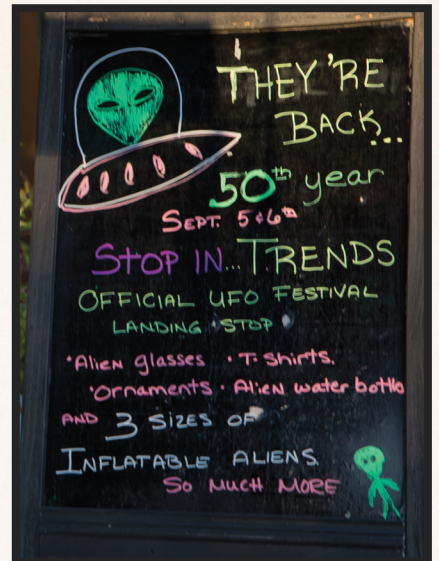 THEY'RE
BACK...
50th year
SEPT. 5 & 6th
STOP IN... TRENDS
OFFICIAL UFO FESTIVAL
LANDING STOP
• Alien glasses • T. Shirts.
• Ornaments • Alien water bottle
AND 3 SIZES OF
INFLATABLE ALIENS
SO MUCH MORE